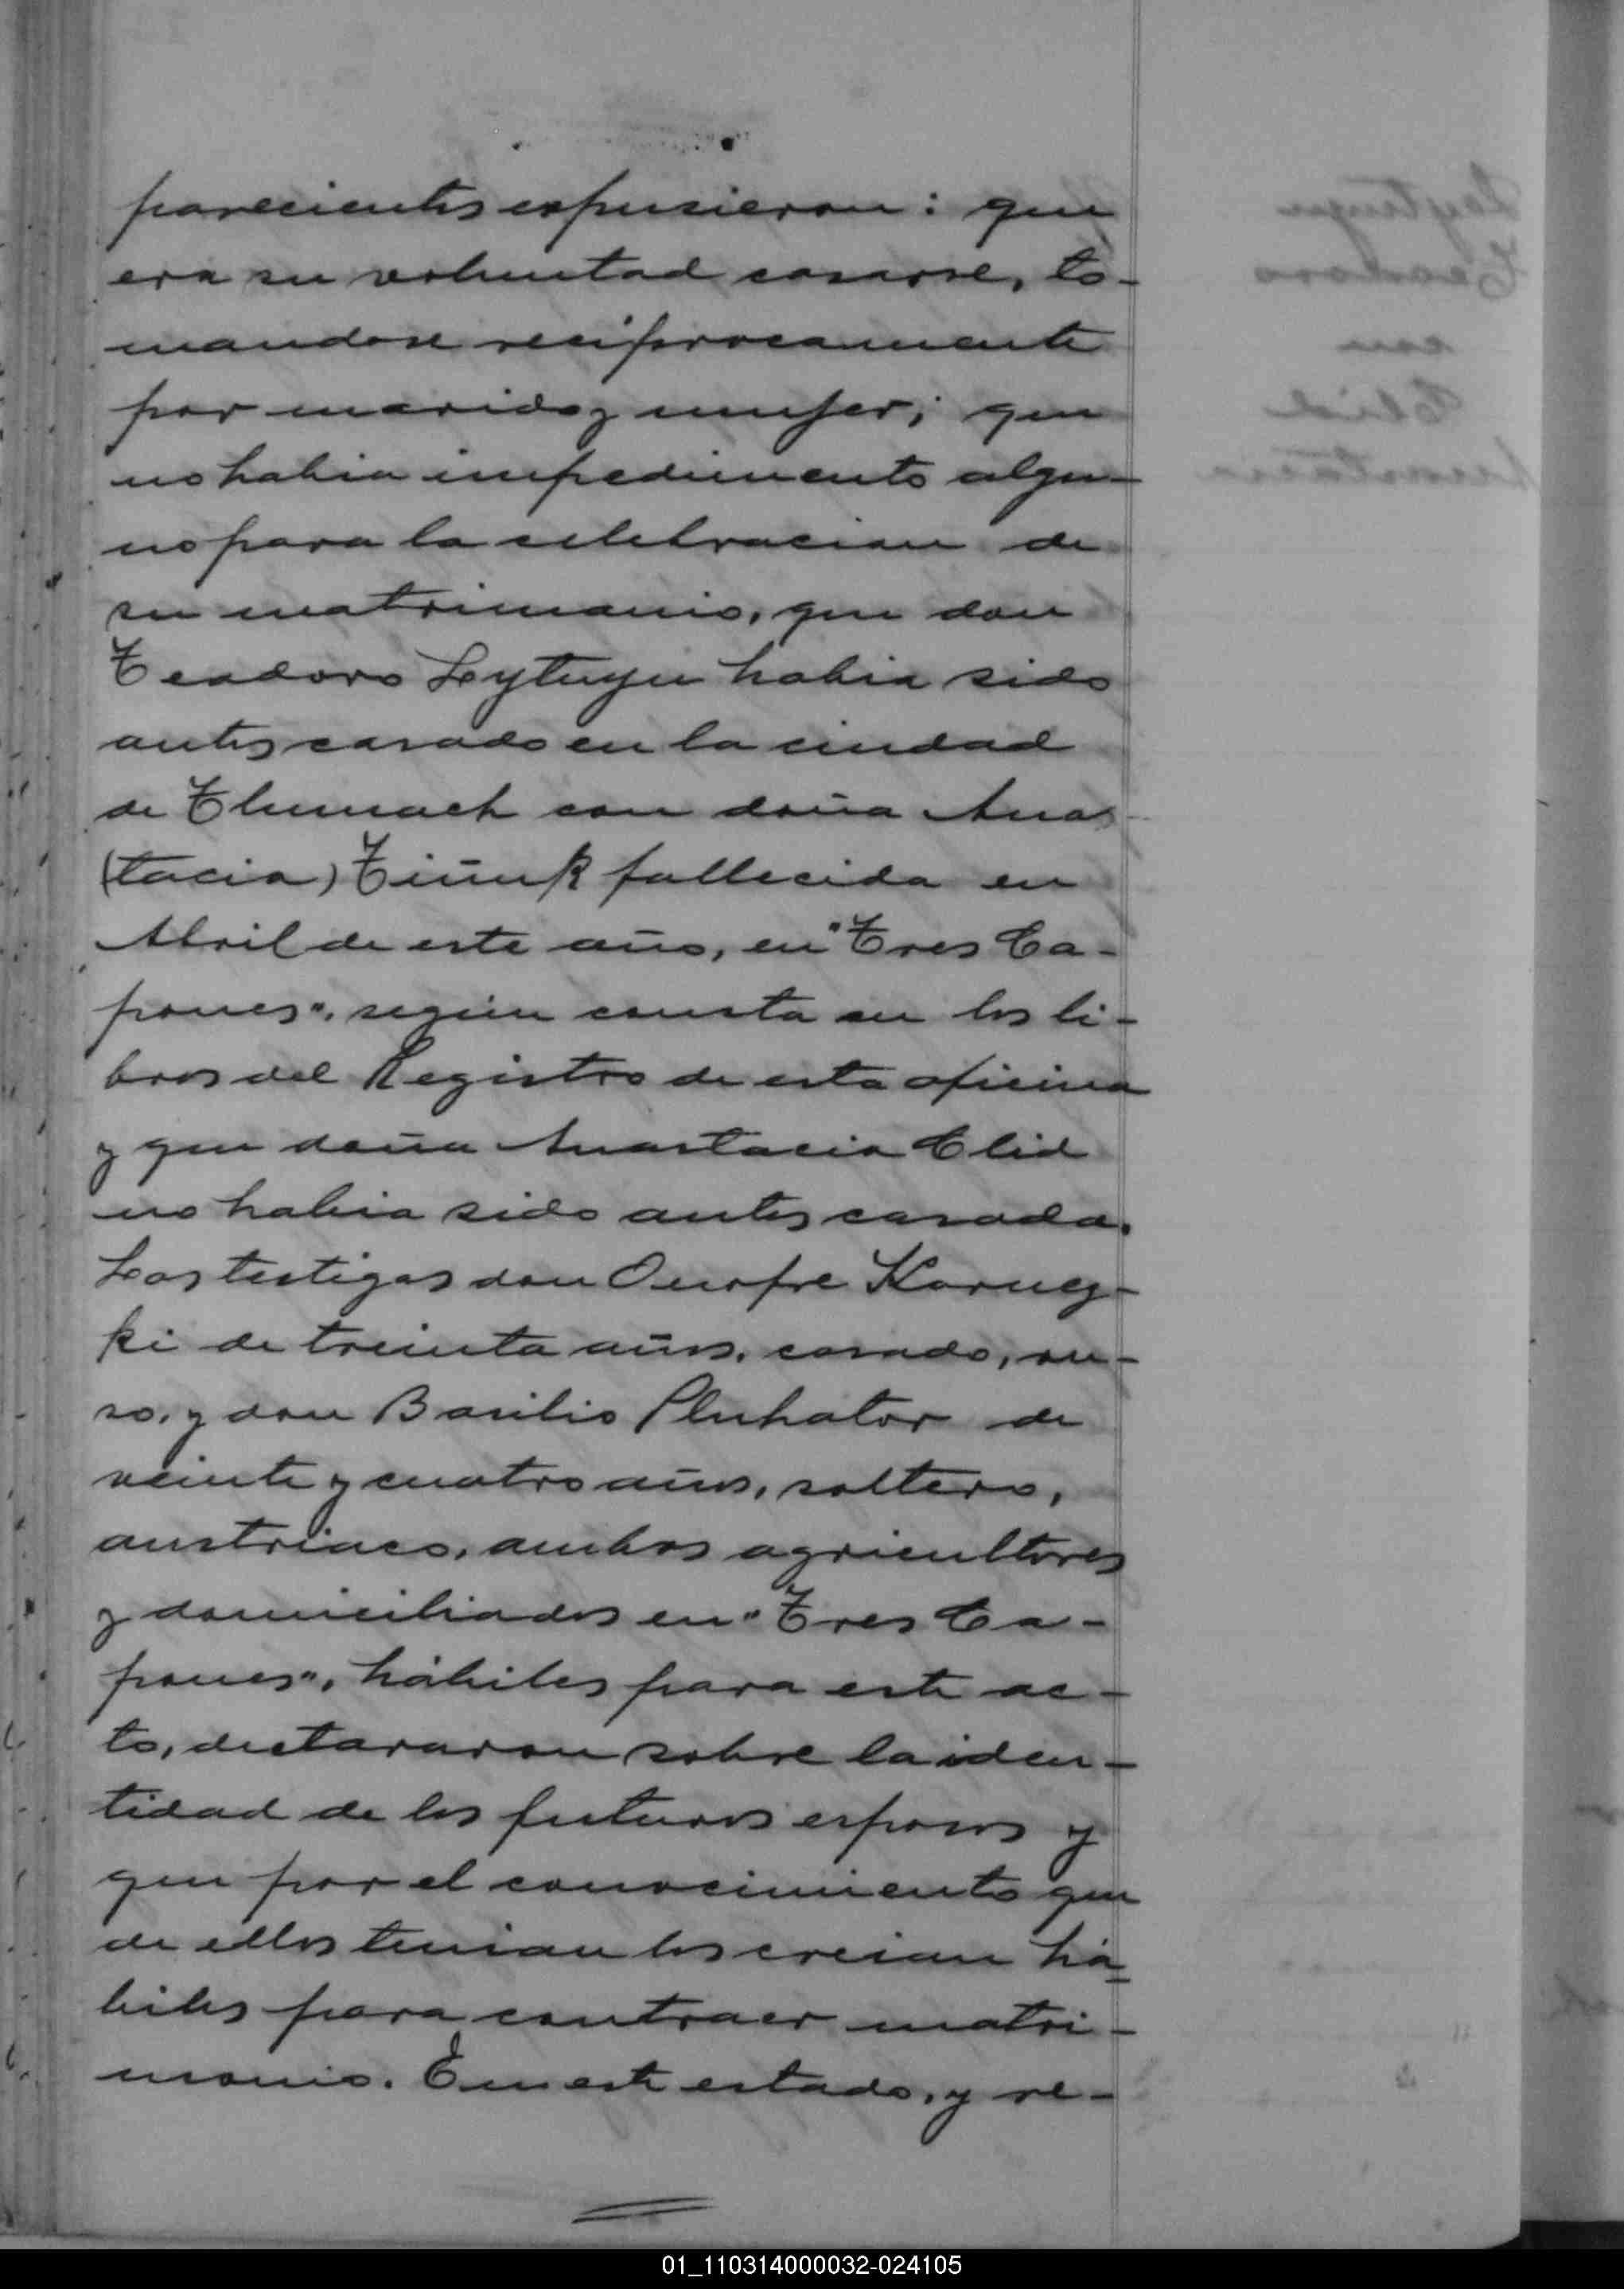 parecientes expusieron: que
era su voluntad casarse, to-
mandose reciprocamente
por marido y mujer; que
no habia impedimento algu-
no para la celebracion de
su matrimonio, que don
Teodoro Leytuyn habia sido
antes casado en la ciudad
de Tlumach con doña Anas
(tacia) fallecida en
Abril de este año, en "Tres Ca-
pones", según consta en los li-
bros del Registro de esta oficina
y que doña Anastacia Clid
no habia sido antes casada.
Los testigos don Onofre Korney-
ki de treinta años, casado, ru-
so, y don Basilio Pluhator de
veinte y cuatro años, soltero,
austriaco, ambos agricultores
y domiciliados en "Tres Ca-
pones", hábiles para este ac-
to, declararon sobre la iden-
tidad de los futuros esposos y
que por el conocimiento que
de ellos tenian los creian há-
biles para contraer matri-
monio. En este estado, y re-
01_110314000032-024105